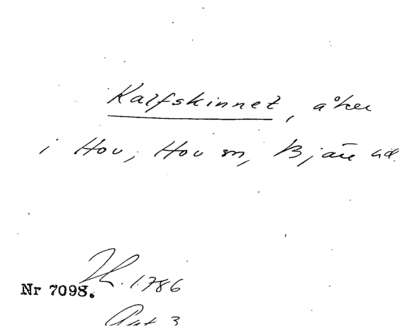 Kalfskinnet, åker
i Hov, Hov sn, Bjäre hd.
H. 1786
Nr 7098.
Akt 3